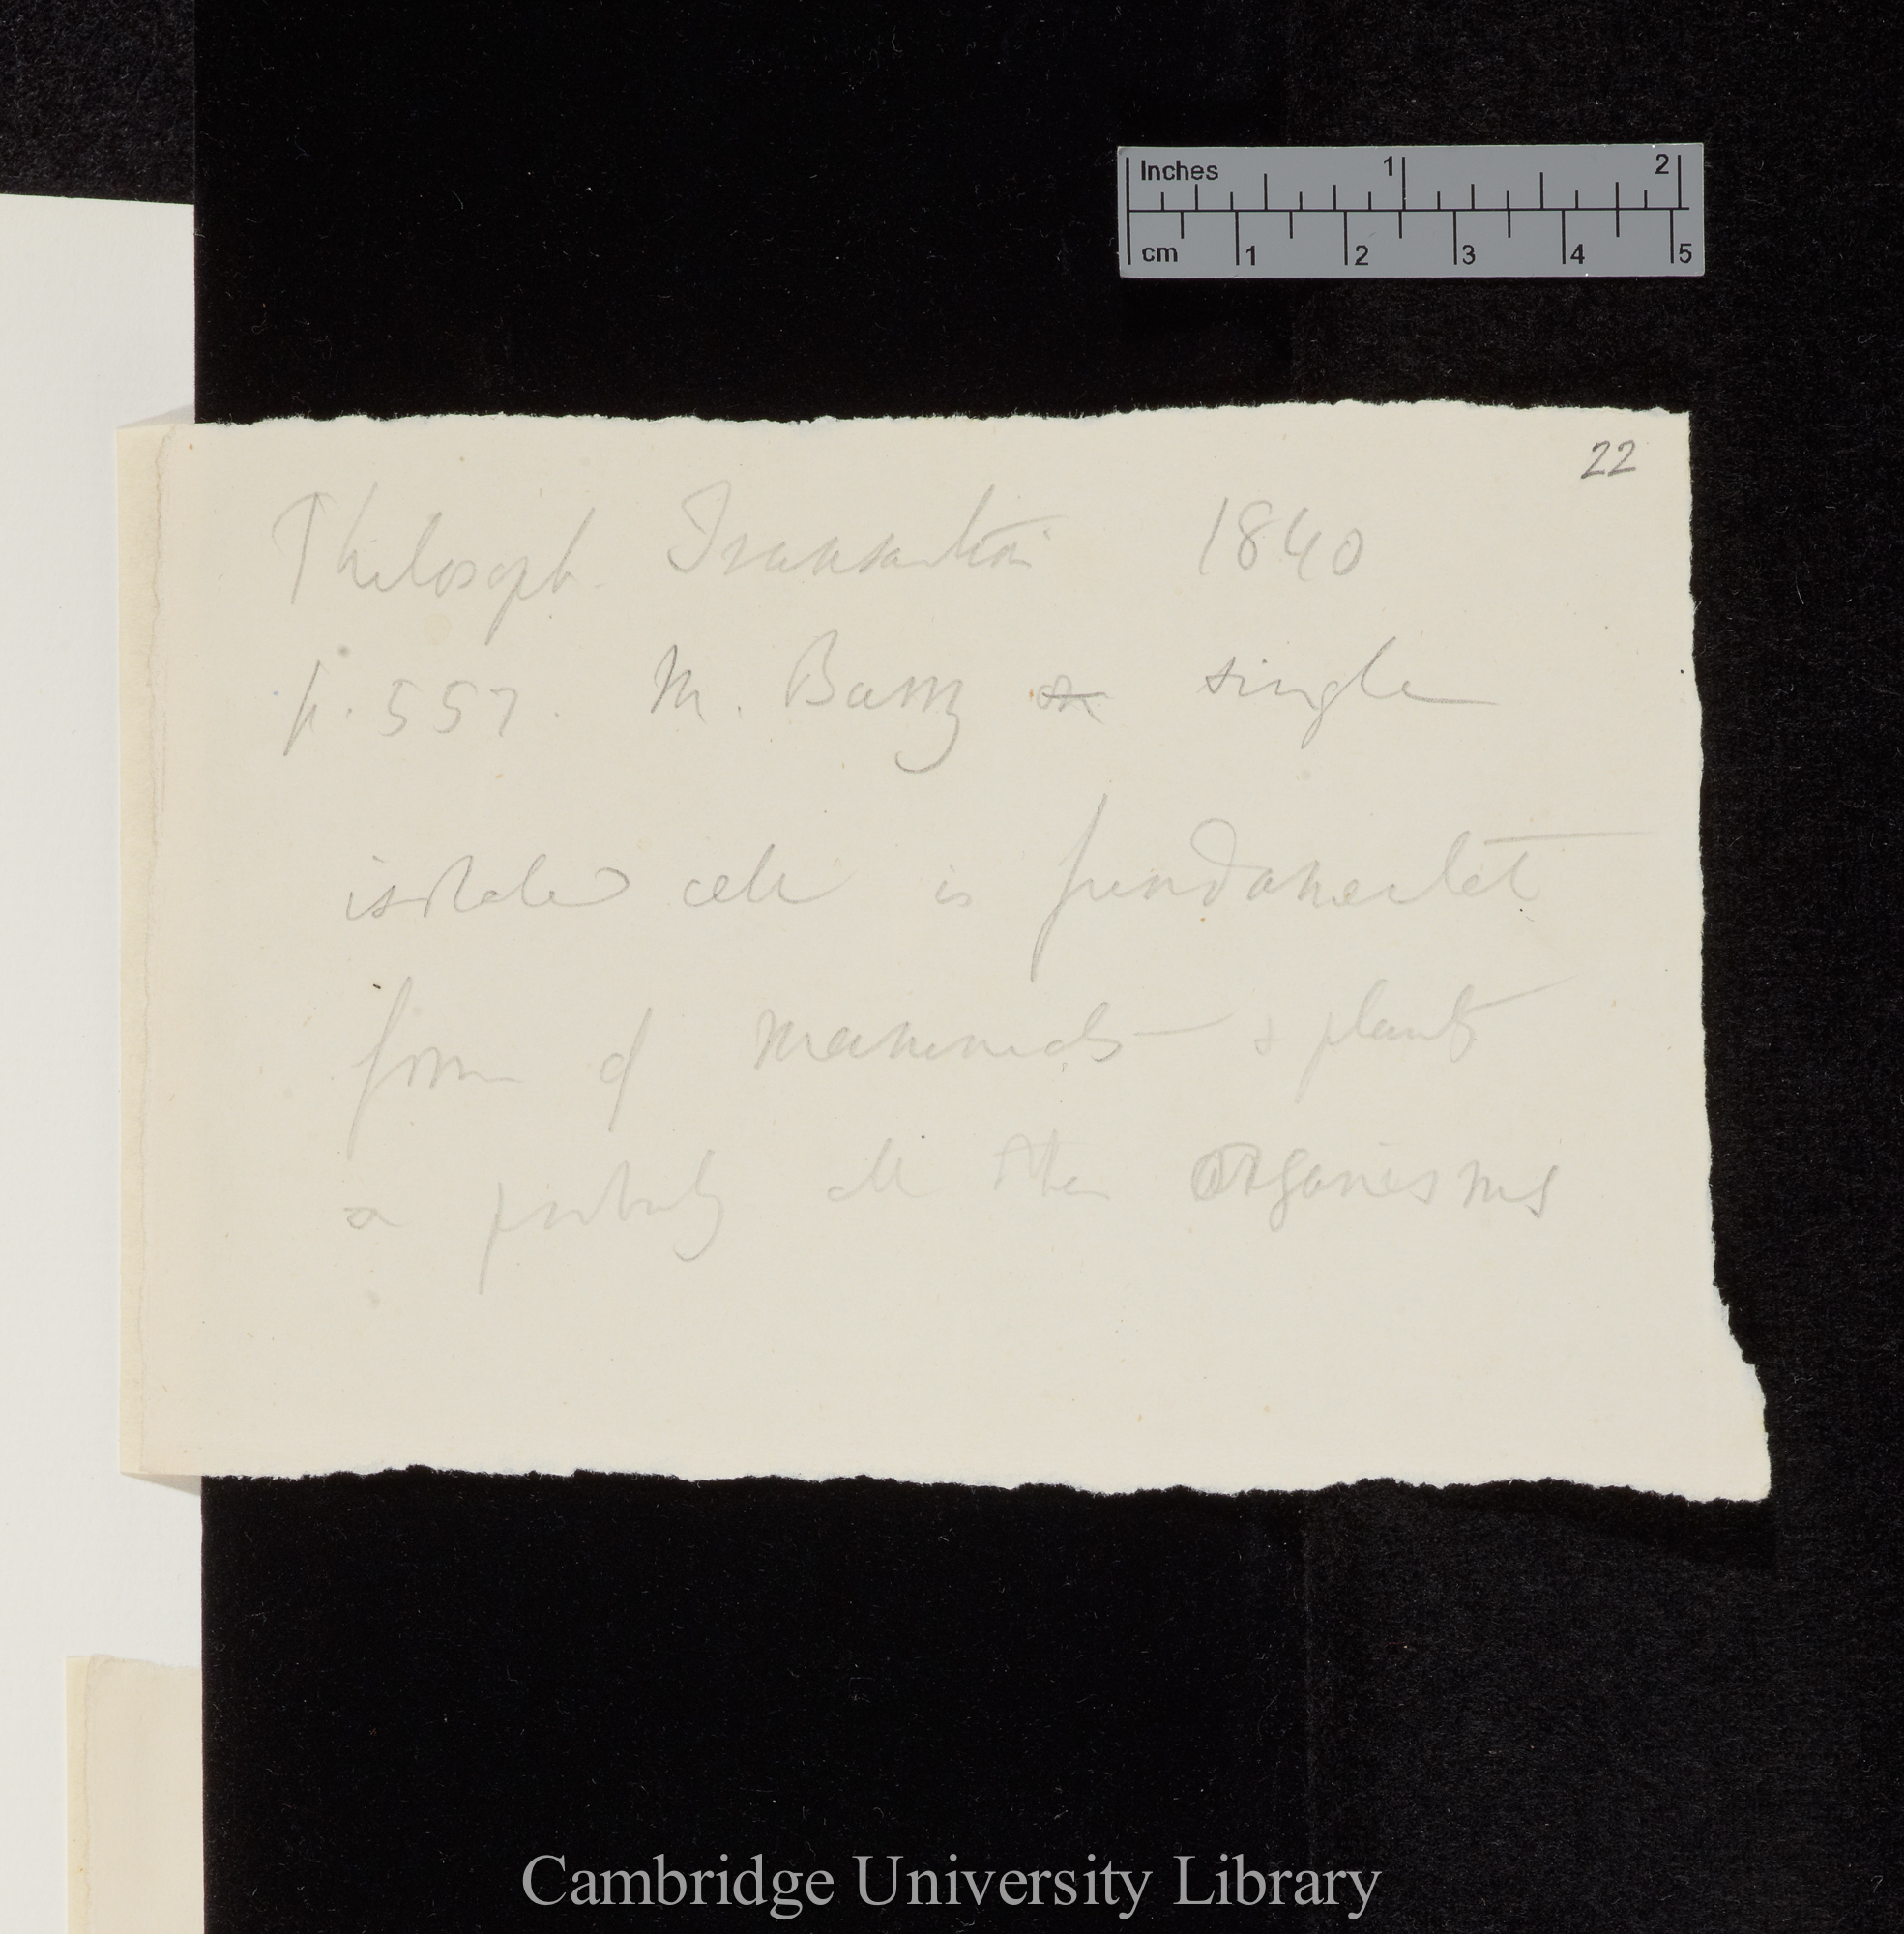 Inches 1 2
cm 1 2 3 4 5
22
Philosoph. Transaction 1840
p. 557. M. Barry single
isolated cell is fundamental
form of mammals & plants
& probably all other organisms
Cambridge University Library